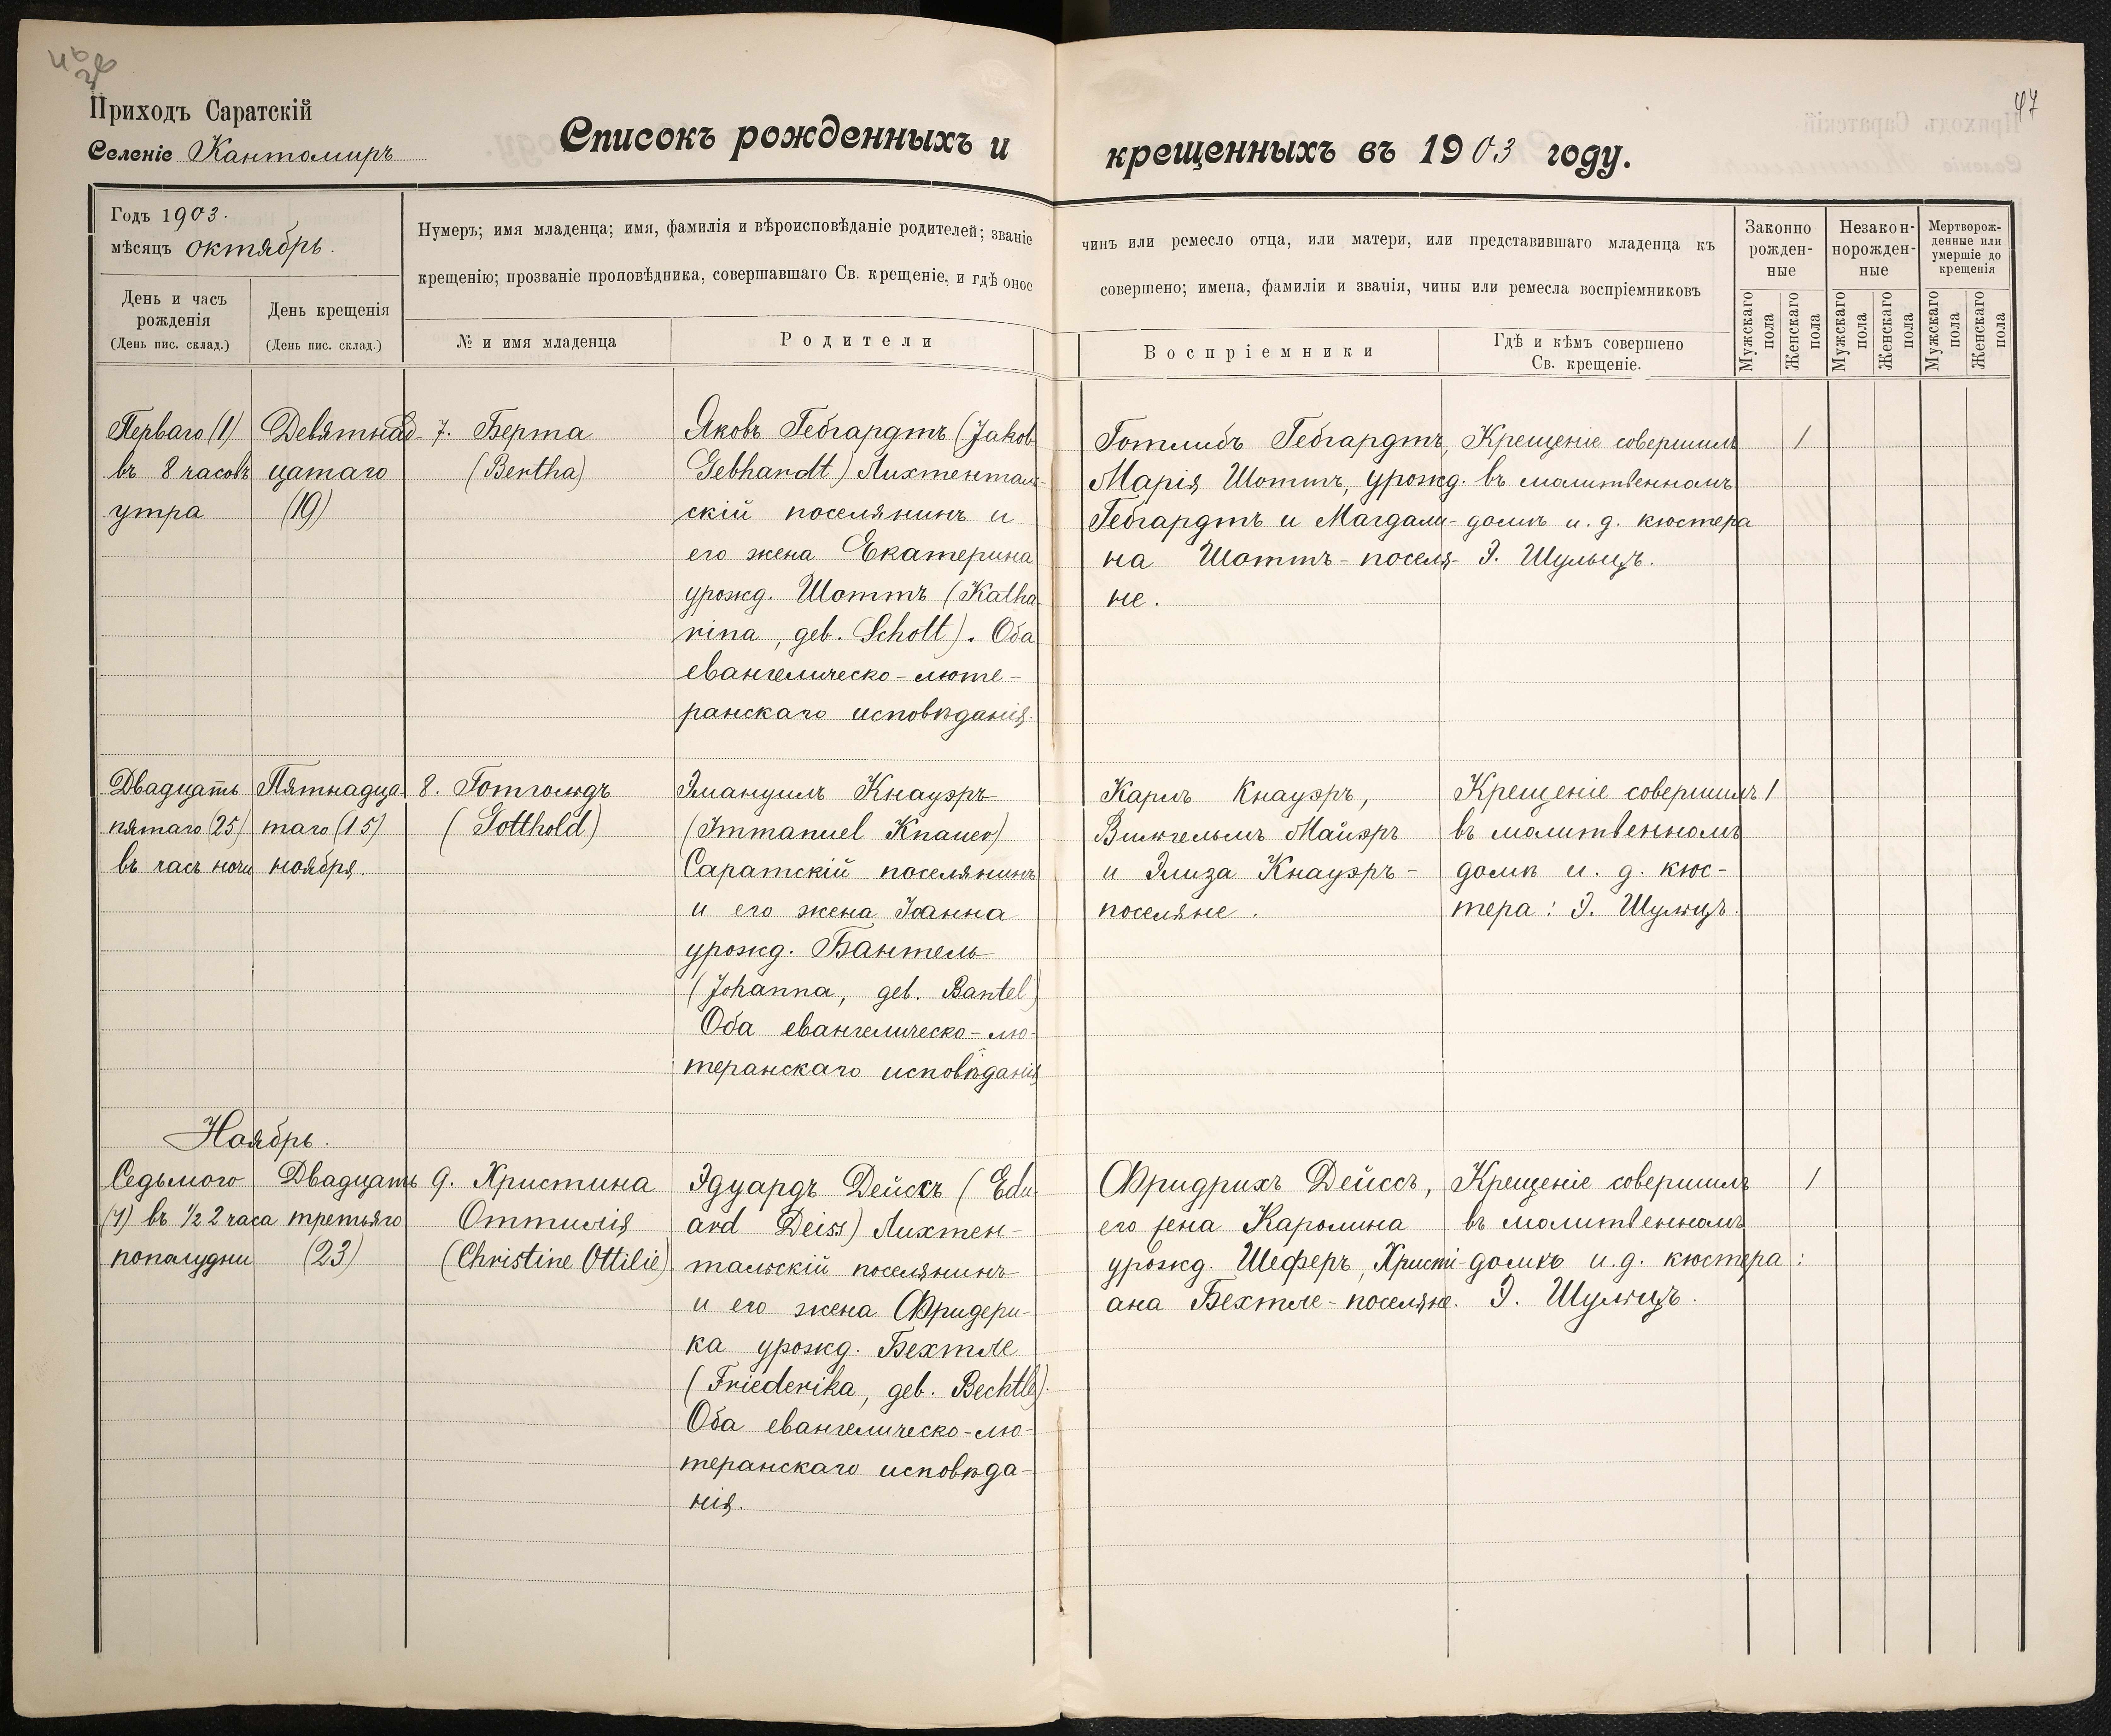 47
Приходъ Саратскій
Селеніе Кантомиръ
Списокъ рожденныхъ и крещенныхъ въ 1903 году.
Годъ 1903.
мѣсяцъ октябрь.
День и часъ рожденія
(День пис. склад.)
День крещенія
(День пис. склад.)
Нумеръ; имя младенца; имя, фамилія и вѣроисповѣданіе родителей; званіе чинъ или ремесло отца, или матери, или представившаго младенца къ
крещенію; прозваніе проповѣдника, совершавшаго Св. крещеніе, и гдѣ оное совершено; имена, фамиліи и званія, чины или ремесла воспріемниковъ
№ и имя младенца
Родители
Воспріемники
Гдѣ и кѣмъ совершено
Св. крещеніе.
Законно
рожден-
ные
Незакон-
норожден-
ные
Мертворож-
денные или
умершіе до
крещенія
Мужскаго пола
Женскаго пола
Мужскаго пола
Женскаго пола
Мужскаго пола
Женскаго пола
Перваго (1)
въ 8 часовъ
утра
Девятнад-
цатаго
(19)
7. Берта
(Bertha)
Яковъ Гебгардтъ (Jakob
Gebhardt) Лихтенталь-
скій поселянинъ и
его жена Екатерина
урожд. Шоттъ (Katha
rina, geb. Schott). Оба
евангелическо-люте-
ранскаго исповѣданія.
Готлибъ Гебгардтъ,
Марія Шоттъ, урожд.
Гебгардтъ и Магдали-
на Шоттъ - поселя-
не.
Крещеніе совершилъ
въ молитвенномъ
домѣ и. д. кюстера
Э. Шульцъ.
1
Двадцать
пятаго (25)
въ часъ ночи
Пятнадца
таго (15)
ноября.
8. Готгольдъ
(Gotthold)
Эмануилъ Кнауэръ
(Immanuel Knauer)
Саратскій поселянинъ
и его жена Іоанна
урожд. Бантель
(Johanna, geb. Bantel)
Оба евангелическо-лю-
теранскаго исповѣданія
Карлъ Кнауэръ,
Вильгельмъ Майэръ
и Элиза Кнауэръ -
поселяне.
Крещеніе совершилъ
въ молитвенномъ
домѣ и. д. кюс-
тера: Э. Шульцъ.
1
Ноябрь.
Седьмого
(7) въ 1/2 2 часа
пополудни
Двадцать
третьяго
(23)
9. Христина
Оттилія
(Christine Ottilie)
Эдуардъ Дейссъ (Edu-
ard Deiss) Лихтен-
тальскій поселянинъ
и его жена Фридери-
ка урожд. Бехтле
(Friederika, geb. Bechtle).
Оба евангелическо-лю-
теранскаго исповѣда-
нія.
Фридрихъ Дейссъ,
его жена Каролина
урожд. Шеферъ, Христі-
ана Бехтле - поселяне.
Крещеніе совершилъ
въ молитвенномъ
домѣ и. д. кюстера:
Э. Шульцъ.
1